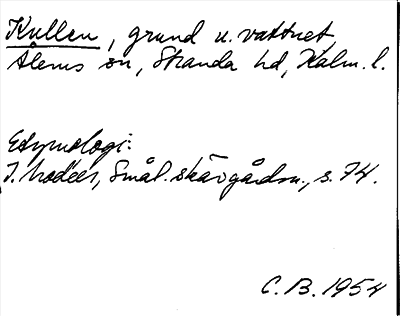 Kullen, grund u. vattnet,
Ålems sn, Stranda hd, Kalm. l.
Etymologi:
I. Modéer, Smål. skärgårdsn., s. 74.
C. B. 1954